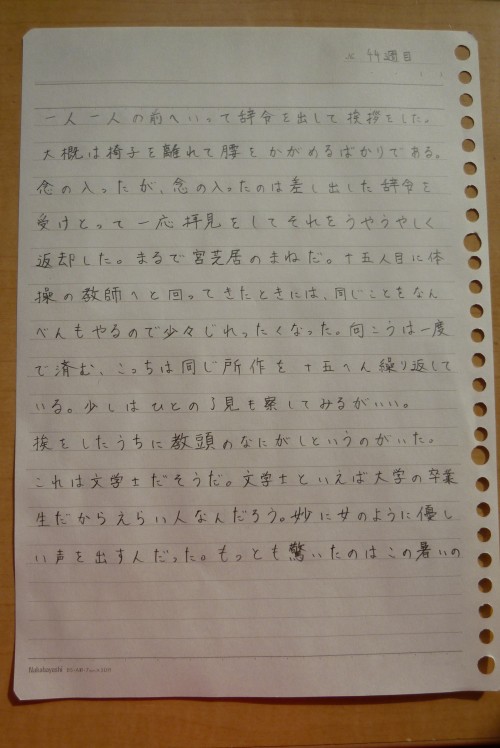 44週目
一人一人の前へいって辞令を出して挨拶をした。
大概は椅子を離れて腰をかがめるばかりである。
念の入ったが、念の入ったのは差し出した辞令を
受けとって一応拝見をしてそれをうやうやしく
返却した。まるで宮芝居のまねだ。十五人目に体
操の教師へと回ってきたときには、同じことをなん
べんもやるので少々じれったくなった。向こうは一度
で済む、こっちは同じ所作を十五へん繰り返して
いる。少しはひとの了見も察してみるがいい。
挨をしたうちに教頭のなにがしというのがいた。
これは文学士だそうだ。文学士といえば大学の卒業
生だからえらい人なんだろう。妙に女のように優し
い声を出す人だった。もっとも驚いたのはこの暑いの
Nakabayashi